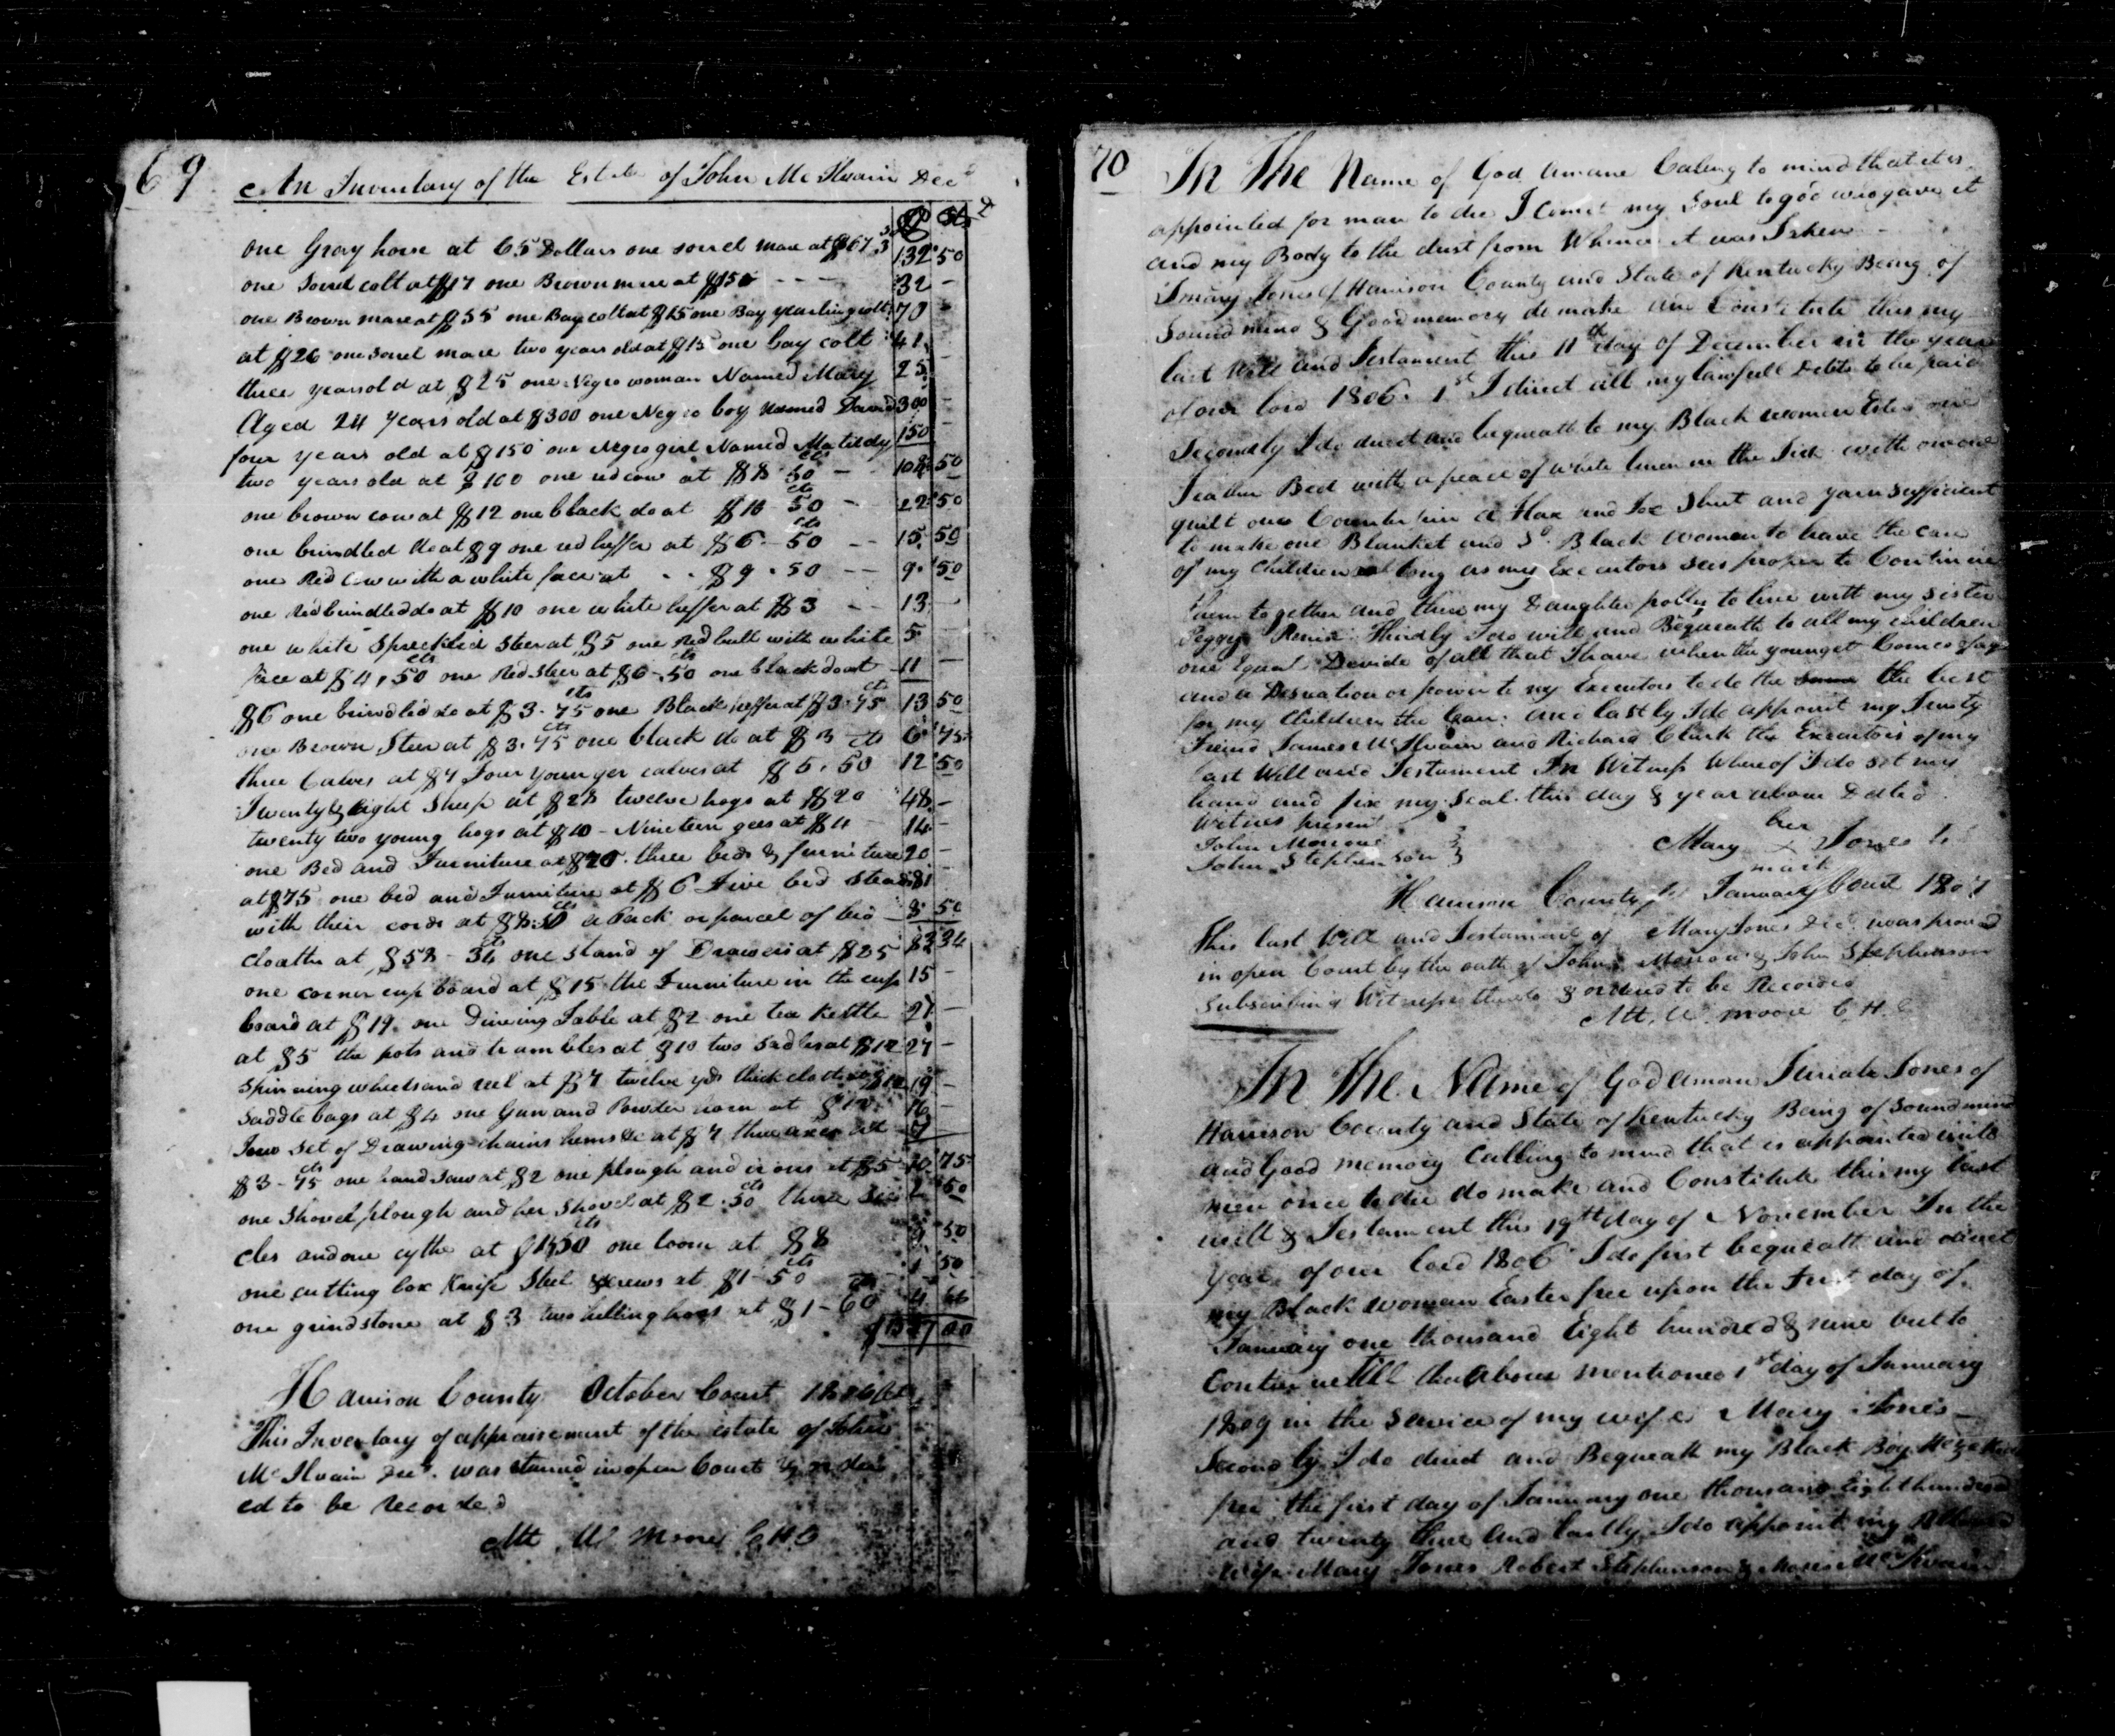 69
An Inventory of the Estate of John McIlvain Decd
$ cts
one Gray horse at 65 Dollars one sorrel mare at $67 132 50
one Sorrel colt at $17 one Brown mare at $15 - - - 32 -
one Brown mare at $55 one Bay colt at $15 one Bay yearling colt 70
at $26 one sorrel mare two years old at $15 one bay colt 41
three years old at $25 one Negro woman Named Mary 25
Aged 24 Years old at $300 one Negro boy Named David 300 -
four years old at $150 one Negro girl Named Matildy 150 -
two years old at $100 one red cow at $8 50 cts - 108 50
one brown cow at $12 one black do at $10 50 cts - 22 50
one brindled do at $9 one red heffer at $6 - 50 cts -- 15 50
one Red Cow with a white face at - - $9 . 50 -- 9 50
one Red brindled do at $10 one white heffer at $3 -- 13 -
one white Spreckled Steer at $5 one Red bull with white 5 -
face at $4,50 cts one Red Steer at $6-50 cts one black do at 11 -
$6 one brindled do at $3.75 cts one Black heffer at $3.75 cts 13 50
one Brown Steer at $3.75 cts one black do at $3 6 75
three Calves at $7 Four Younger calves at $5.50 cts 12 50
Twenty Eight Sheep at $28 twelve hogs at $20 48 -
twenty two young hogs at $10 - Nineteen gees at $4 14 -
one Bed and Furniture at $20 three beds & furniture 20 -
at $75 one bed and Furniture at $6 Five bed Steads 81 -
with their cords at $8.50 cts a Pack or parcel of bed 8 50
cloaths at $58 - 34 cts one Stand of Drawers at $25 83 34
one corner cupboard at $15 the Furniture in the cup 15 -
board at $19. one Dineing Table at $2 one tea Kettle 21 -
at $5 the pots and trambles at $10 two Sadles at $12 27 -
Spinning wheels and reel at $7 twelve yds thick cloth at $12 19 -
Saddle bags at $4 one Gun and Powder horn at $12 16 -
Four Set of Drawing chains hems &c at $7 three axes at 7
$3-75 cts one hand Saw at $2 one plough and irons at $5 10 75
one Shovel plough and her Shovel at $2.50 cts three sic 2 50
cles and one cythe at $1,50 cts one loom at $8 9 50
one cutting box Knife Steel Screws at $1-50 cts 1 50
one grindstone at $3 two hilling hoes at $1-60 cts 4 60
Harrison County October Court 1806
This Inventory of appraisement of the estate of John
McIlvain Decd. was returned in open Court & order
ed to be recorded
Att W Moore C.H.C
70
In The Name of God amane Caleng to mind that it is
appointed for man to die I comit my Soul to god who gave it
and my Body to the dust from Whence it was Taken
I mary Jones of Harrison County and State of Kentucky Being of
Sound mind & Good memory do make and Constitute this my
last Will and Testament this 11th day of December in the year
of our lord 1806. 1st I direct all my lawfull Debts to be paid
Secondly I do direct and bequeath to my Black woman Ester one
Feather Bed with a peace of white linen in the Tick with one
quilt one Counterpin a Flax and Toe Sheet and yarn sufficient
to make one Blanket and Sd. Black Woman to have the care
of my Children as long as my Executors sees proper to Continue
them together and then my Daughter polly to live with my sister
Peggy Thirdly I do will and Bequeath to all my children
one Equal Devide of all that I have when the youngest Comes of age
and a power to my Executors to do the same the best
for my Children the can: and lastly I do appoint my Trusty
Friend James McIlvain and Richard Clark the Executors of my
last Will and Testament In Witness Whereof I do set my
hand and fix my Seal this day & year above Dated
Witness present
John Morrow
John Stephenson
her
Mary x Jones
mark
Harrison County January Court 1807
This last Will and Testament of Mary Jones Decd. was proved
in open Court by the oath of John Morrow & John Stephenson
Subscribing Witnesses thereto & ordered to be Recorded
Att, W. Moore C.H.C
In The Name of God aman Jones of
Harrison County and State of Kentucky Being of Sound mind
and Good memory Calling to mind that is appointed unto
men once to die do make and Constitute this my last
will & Testament this 19th day of November In the
year of our lord 1806 I do first bequeath and direct
my Black woman Easter free upon the First day of
January one thousand Eight hundred & nine but to
Continue till the above mentioned 1st day of January
1809 in the Service of my wife Mary Jones -
Secondly I do direct and Bequeath my Black Boy
free the first day of January one thousand Eight hundred
and twenty three and lastly I do appoint my
Wife Mary Jones Robert Stephenson & Moses McIlvain